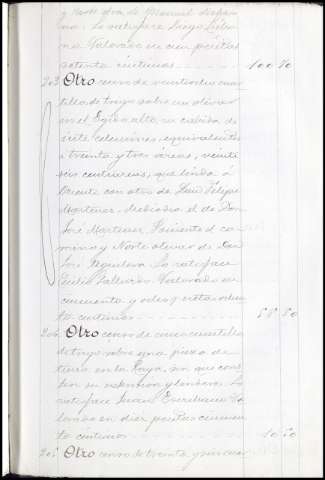 y Norte otra de Manuel
na. La satisface Diego
na. Valorado en cien pesetas
setenta céntimos 100 70
203 Otro censo de veinticuatro cuar
tillos de trigo sobre un olivar
en el Egido alto, su cabida de
siete celemines, equivalentes
a treinta y tres áreas, veinte
seis centiáreas, que linda á
Oriente con otro de Luis Felipe
Martinez, Mediodia el de Don
José Martinez, Poniente el ca
mino y Norte olivar de Don
José La satisface
Emilio Valorado en
cincuenta y ocho pesetas ochen
ta céntimos 58 80
204 Otro censo de cinco cuartillos
de trigo sobre una pieza de
tierra en la Raya, sin que cons
ten su estension y linderos. La
satisface Juan Va
lorado en diez pesetas cincuen
ta céntimos 10 50
205 Otro censo de treinta y cinco